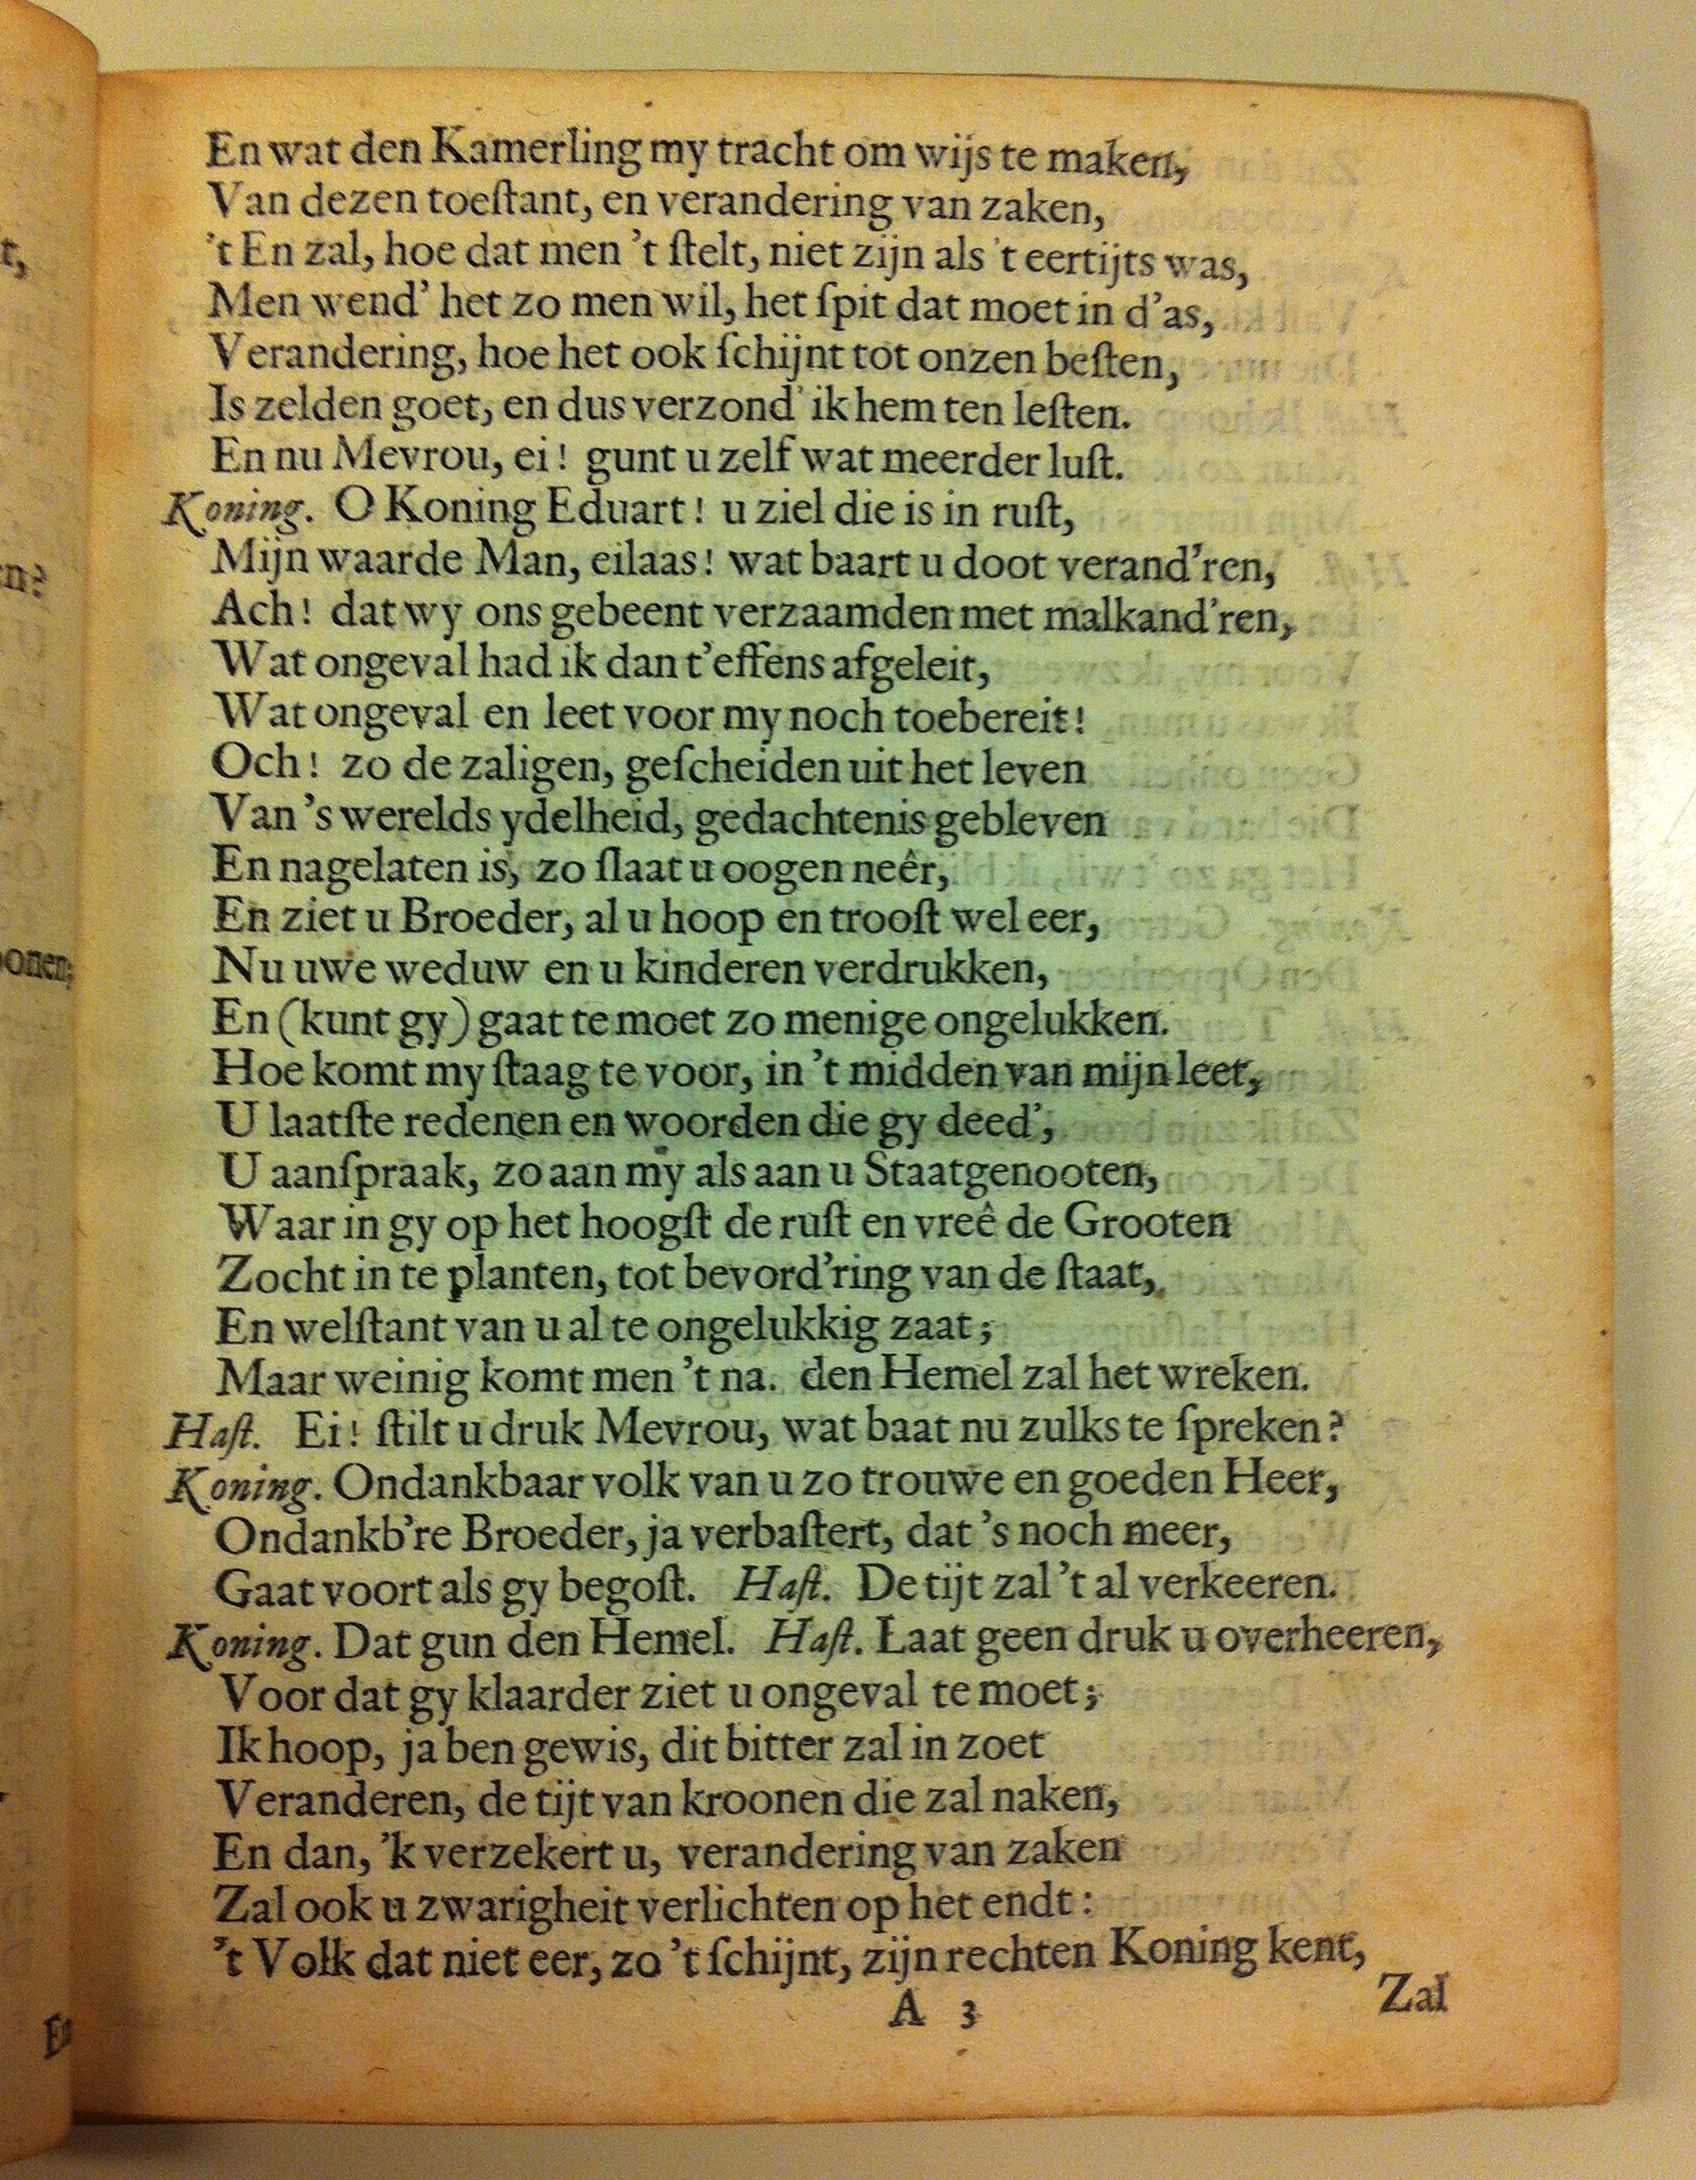 En wat den Kamerling my tracht om wijs te maken,
Van dezen toeſtant, en verandering van zaken,
't En zal, hoe dat men 't ſtelt, niet zijn als 't eertijts was,
Men wend' het zo men wil, het ſpit dat moet in d'as,
Verandering, hoe het ook ſchijnt tot onzen beſten,
Is zelden goet, en dus verzond' ik hem ten leſten.
En nu Mevrou, ei! gunt u zelf wat meerder luſt.
Koning. O Koning Eduart! u ziel die is in ruſt,
Mijn waarde Man, eilaas! wat baart u doot verand'ren,
Ach! dat wy ons gebeent verzaamden met malkand'ren,
Wat ongeval had ik dan t'effens afgeleit,
Wat ongeval en leet voor my noch toebereit!
Och! zo de zaligen, geſcheiden uit het leven
Van 's werelds ydelheid, gedachtenis gebleven
En nagelaten is, zo ſlaat u oogen neêr,
En ziet u Broeder, al u hoop en trooſt wel eer,
Nu uwe weduw en u kinderen verdrukken,
En (kunt gy) gaat te moet zo menige ongelukken.
Hoe komt my ſtaag te voor, in 't midden van mijn leet,
U laatſte redenen en woorden die gy deed',
U aanſpraak, zo aan my als aan u Staatgenooten,
Waar in gy op het hoogſt de ruſt en vreê de Grooten
Zocht in te planten, tot bevord'ring van de ſtaat,
En welſtant van u al te ongelukkig zaat;
Maar weinig komt men 't na. den Hemel zal het wreken.
Haſt. Ei! ſtilt u druk Mevrou, wat baat nu zulks te ſpreken?
Koning. Ondankbaar volk van u zo trouwe en goeden Heer,
Ondankb're Broeder, ja verbaſtert, dat 's noch meer,
Gaat voort als gy begoſt. Haſt. De tijt zal 't al verkeeren.
Koning. Dat gun den Hemel. Haſt. Laat geen druk u overheeren,
Voor dat gy klaarder ziet u ongeval te moet;
Ik hoop, ja ben gewis, dit bitter zal in zoet
Veranderen, de tijt van kroonen die zal naken,
En dan, 'k verzekert u, verandering van zaken
Zal ook u zwarigheit verlichten op het endt:
't Volk dat niet eer, zo 't ſchijnt, zijn rechten Koning kent,
A 3
Zal